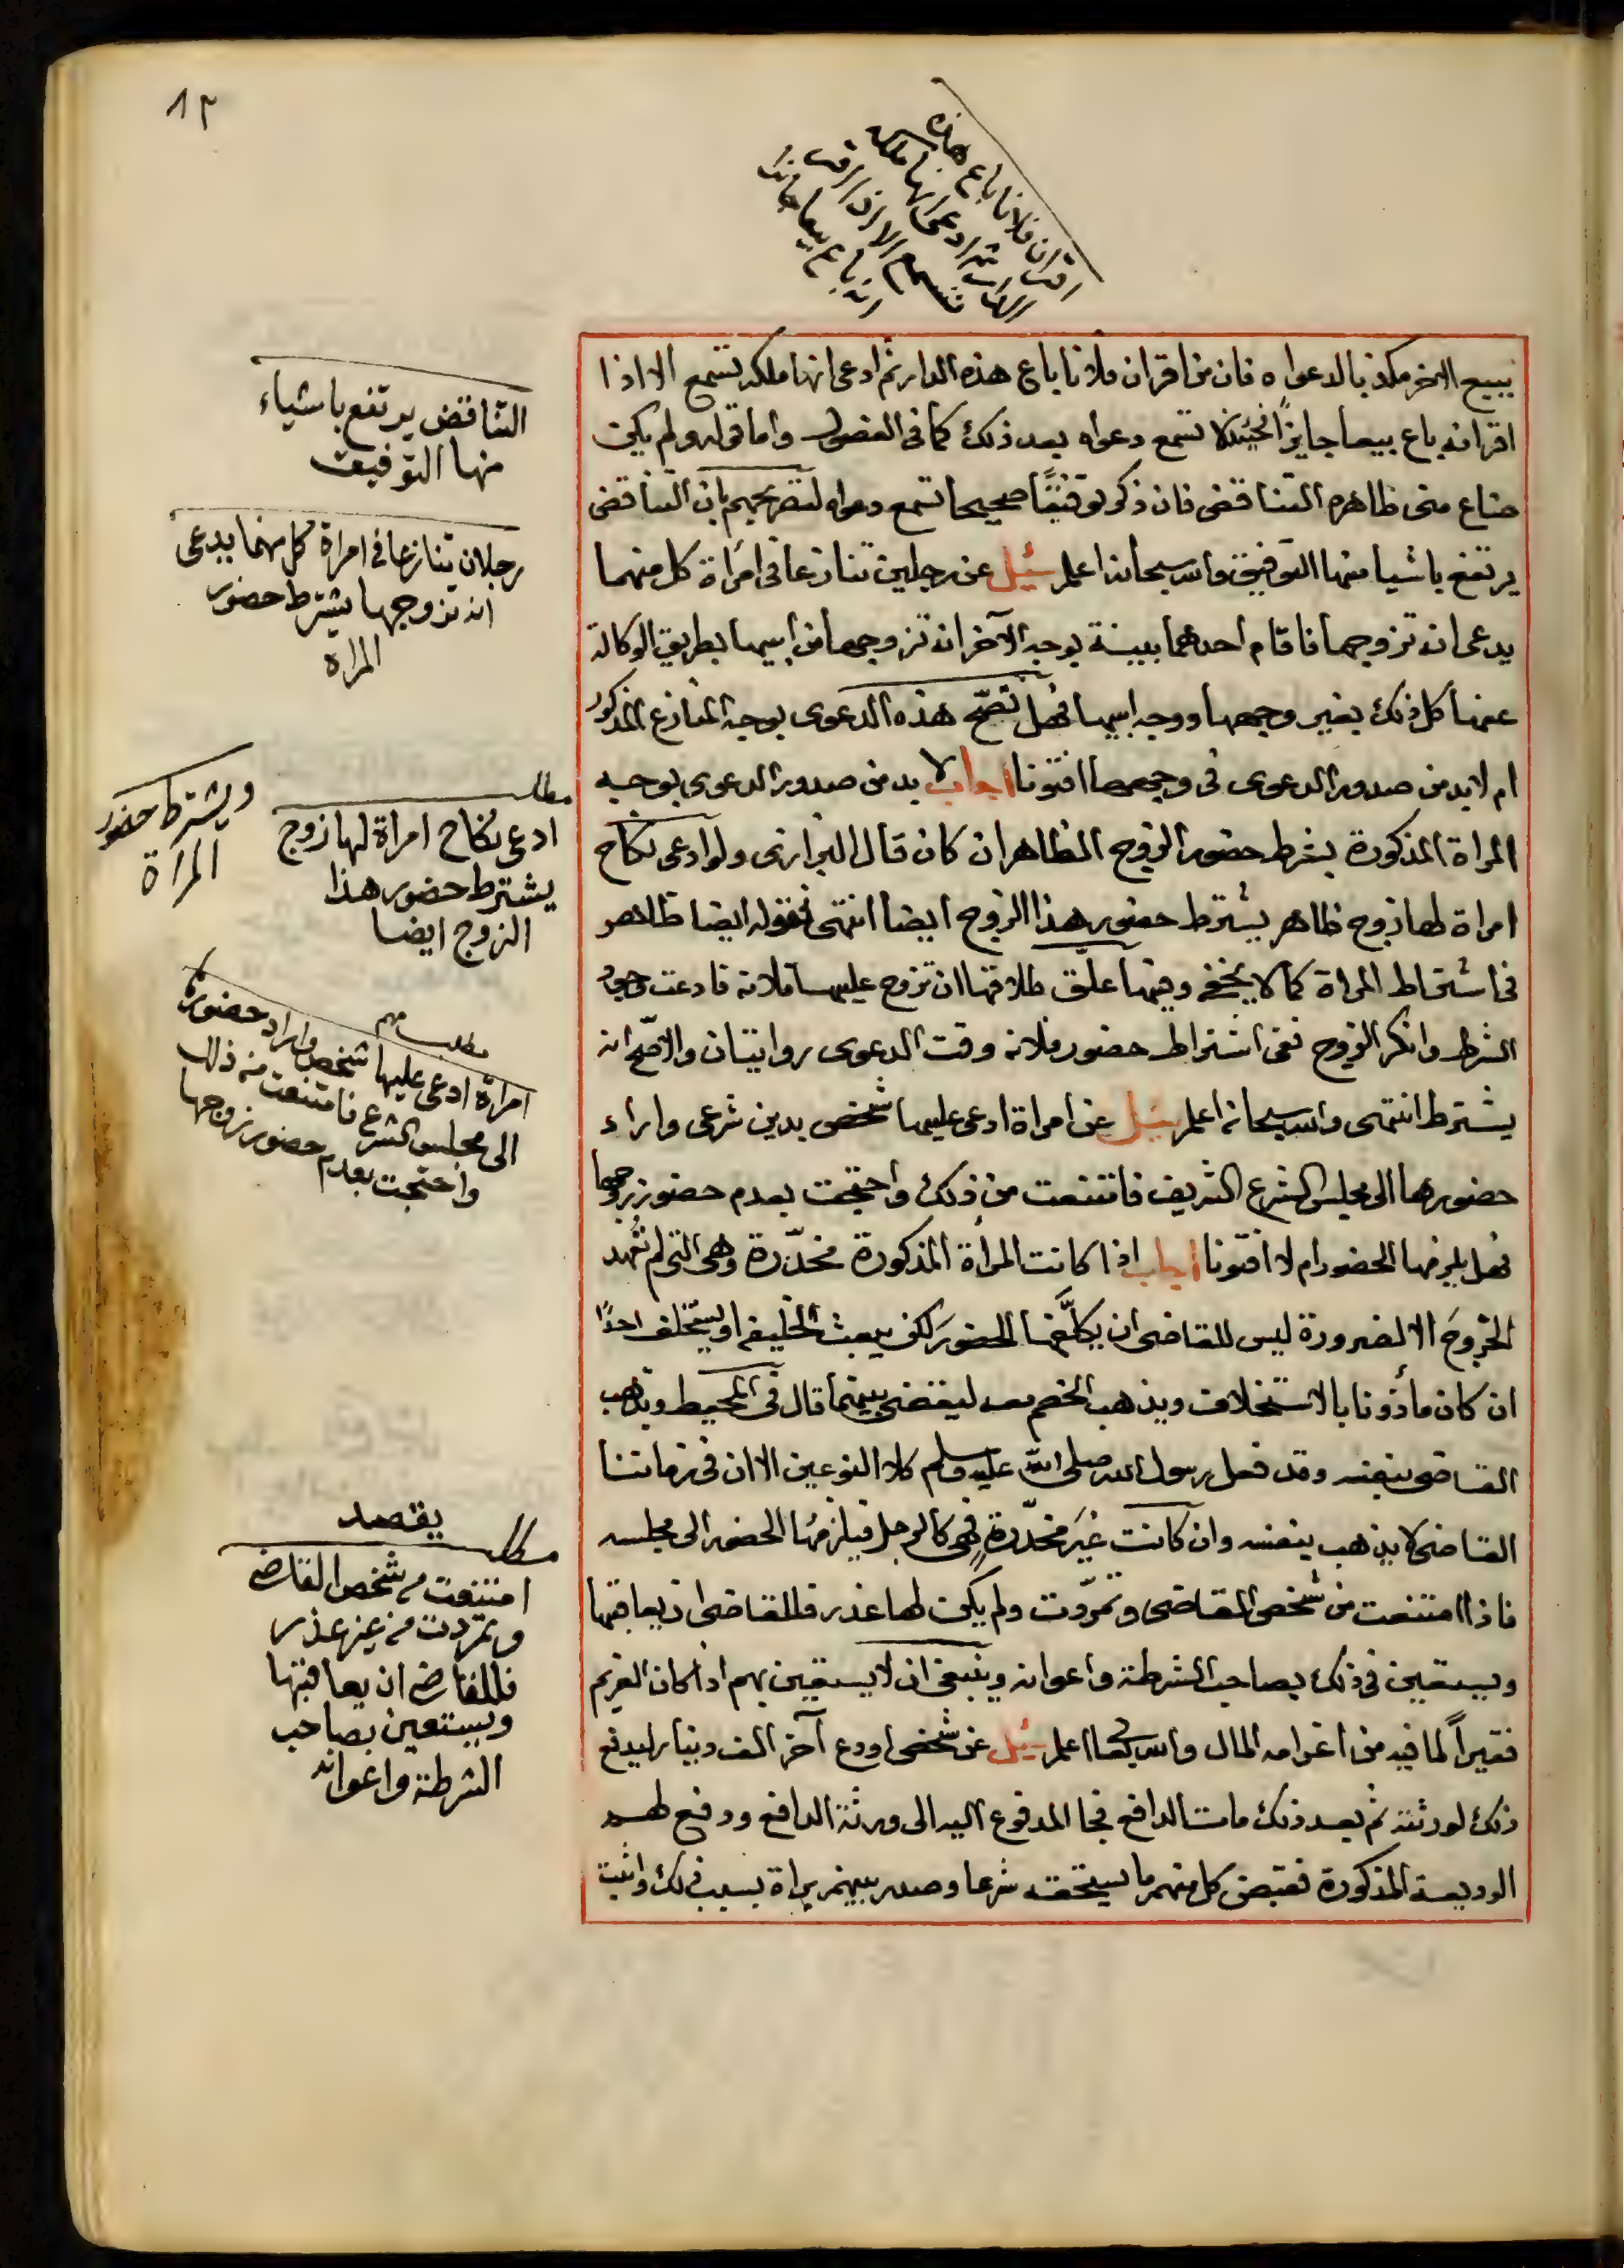 ٨٢
اقر ان فلانا باع هذه
الدار ثم ادعى انها ملكه
تسمع الا اذا اقر
انه باع بيعا جائزا
ببيع الاخر مكذبا لدعواه فان من اقر ان فلانا باع هذه الدار ثم ادعى انها ملكه تسمع الا اذا
اقر انه باع بيعا جايزاً فحينئذ لا تسمع دعواه بعد ذلك كما فى الفصول واما قوله ولم يكن
ضاع منى ظاهره التناقض فان ذكر توفيقًا صحيحا تسمع دعواه لتصريحهم بان التناقض
يرتفع باشيا منها التوفيق والله سبحانه اعلم سُئِل عن رجلين تنازعا فى امرأة كل منهما
يدعى انه تزوجها فاقام احدهما بينة بوجه الآخر انه تزوجها من ابيها بطريق الوكالة
عنها كل ذلك بغير وجهها ووجه ابيها فهل تصحّ هذه الدعوى بوجه المنازع المذكور
ام لا بد من صدور الدعوى فى وجهها افتونا اجاب لا بد من صدور الدعوى بوجه
المراة المذكورة بشرط حضور الزوج الظاهر ان كان قال البزازى ولو ادعى نكاح
امراة لها زوج ظاهر يشترط حضور هذا الزوج ايضا انتهى فقوله ايضا ظاهر
فى اشتراط المراة كما لا يخفى وفيها علّق طلاقها ان تزوج عليها فلانة فادعت وجود
الشرط وانكر الزوج ففى اشتراط حضور فلانه وقت الدعوى روايتان والاصّح انه
يشترط انتهى والله سبحانه اعلم سُئِل عن امراة ادعى عليها شخص بدين شرعى واراد
حضورها الى مجلس الشرع الشريف فامتنعت من ذلك واحتجت بعدم حضور زوجها
فهل يلزمها الحضور ام لا افتونا اجاب اذا كانت المرأة المذكورة مخدّرة وهى التى لم تعهد
الخروجَ الا لضرورة ليس للقاضى ان يكلّفها الحضورَ لكن يبعث الخليفه او يستخلف احدًا
ان كان مأذونا بالاستخلاف ويذهب الخصم معه ليقضى بينهما قال فى المحيط ويذهب
القاضى بنفسه وقد فعل رسول الله صلى الله عليه وسلم كلا النوعين الا ان فى زماننا
القاضى لا يذهب بنفسه وان كانت غيرَ مخدّرةٍ فهى كالرجل فيلزمُها الحضور الى مجلسه
فاذا امتنعت من شخص القاضى وتمرّدت ولم يكن لها عذر فللقاضى ان يعاقبها
ويستعين فى ذلك بصاحب الشرطة واعوانه وينبغى ان لا يستعين بهم اذا كان الغريم
فقيراً لما فيه من اغرامه المال والله سبحانه اعلم سُئِل عن شخص اودع آخر الف دينار ليدفع
ذلك لورثته ثم بعد ذلك مات الدافع فجا المدفوع اليه الى ورثة الدافع ودفع لهم
الوديعة المذكورة فقبض كل منهم ما يستحقه شرعا وصدر بينهم براة بسبب ذلك واثبت
التناقض يرتفع باشياء
منها التوفيق
رجلان تنازعا فى امراة كل منهما يدعى
انه تزوجها يشترط حضور
المراة
مطلب
ادعى نكاح امراة لها زوج
يشترط حضور هذا
الزوج ايضا
ويشترط حضور
المراة
مطلب مهم
امراة ادعى عليها شخص واراد حضوره
الى مجلس الشرع فامتنعت من ذلك
واحتجت بعدم حضور زوجها
يقصد
مطلب
امتنعت من شخص القاضى
وتمردت من غير عذر
فللقاضى ان يعاقبها
ويستعين بصاحب
الشرطة واعوانه